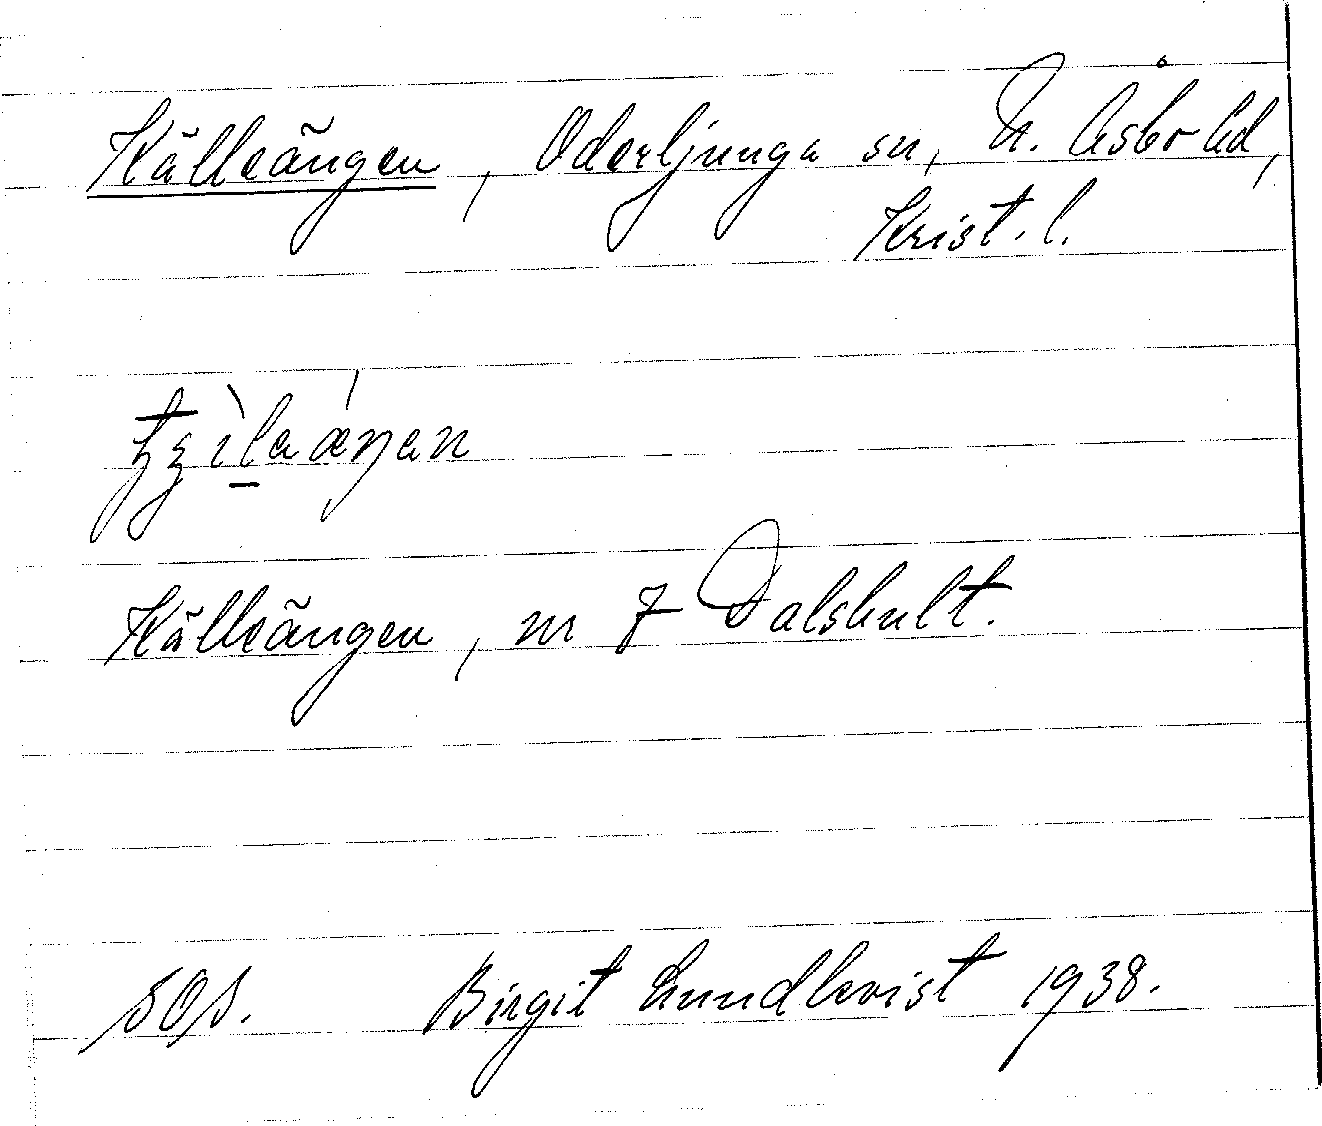 Källeängen, Oderljunga sn, N. Åsbo hd,
Krist. l.
Källeängen, m 7 Dalshult.
SOS. Birgit Lundkvist 1938.